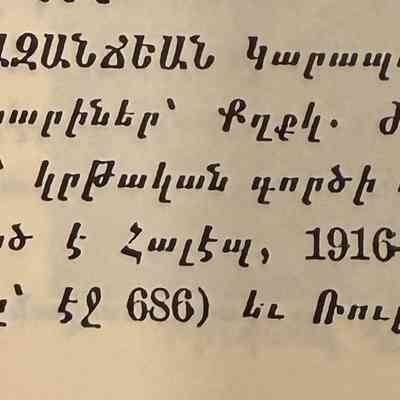 ԱԶԱՆՃԵԱՆ Կարապ
արիներ՝ Քղքկ.
՝ կրթական գործի
ծ է Հալէպ, 1916-
՝ էջ 686) եւ Ռուբ